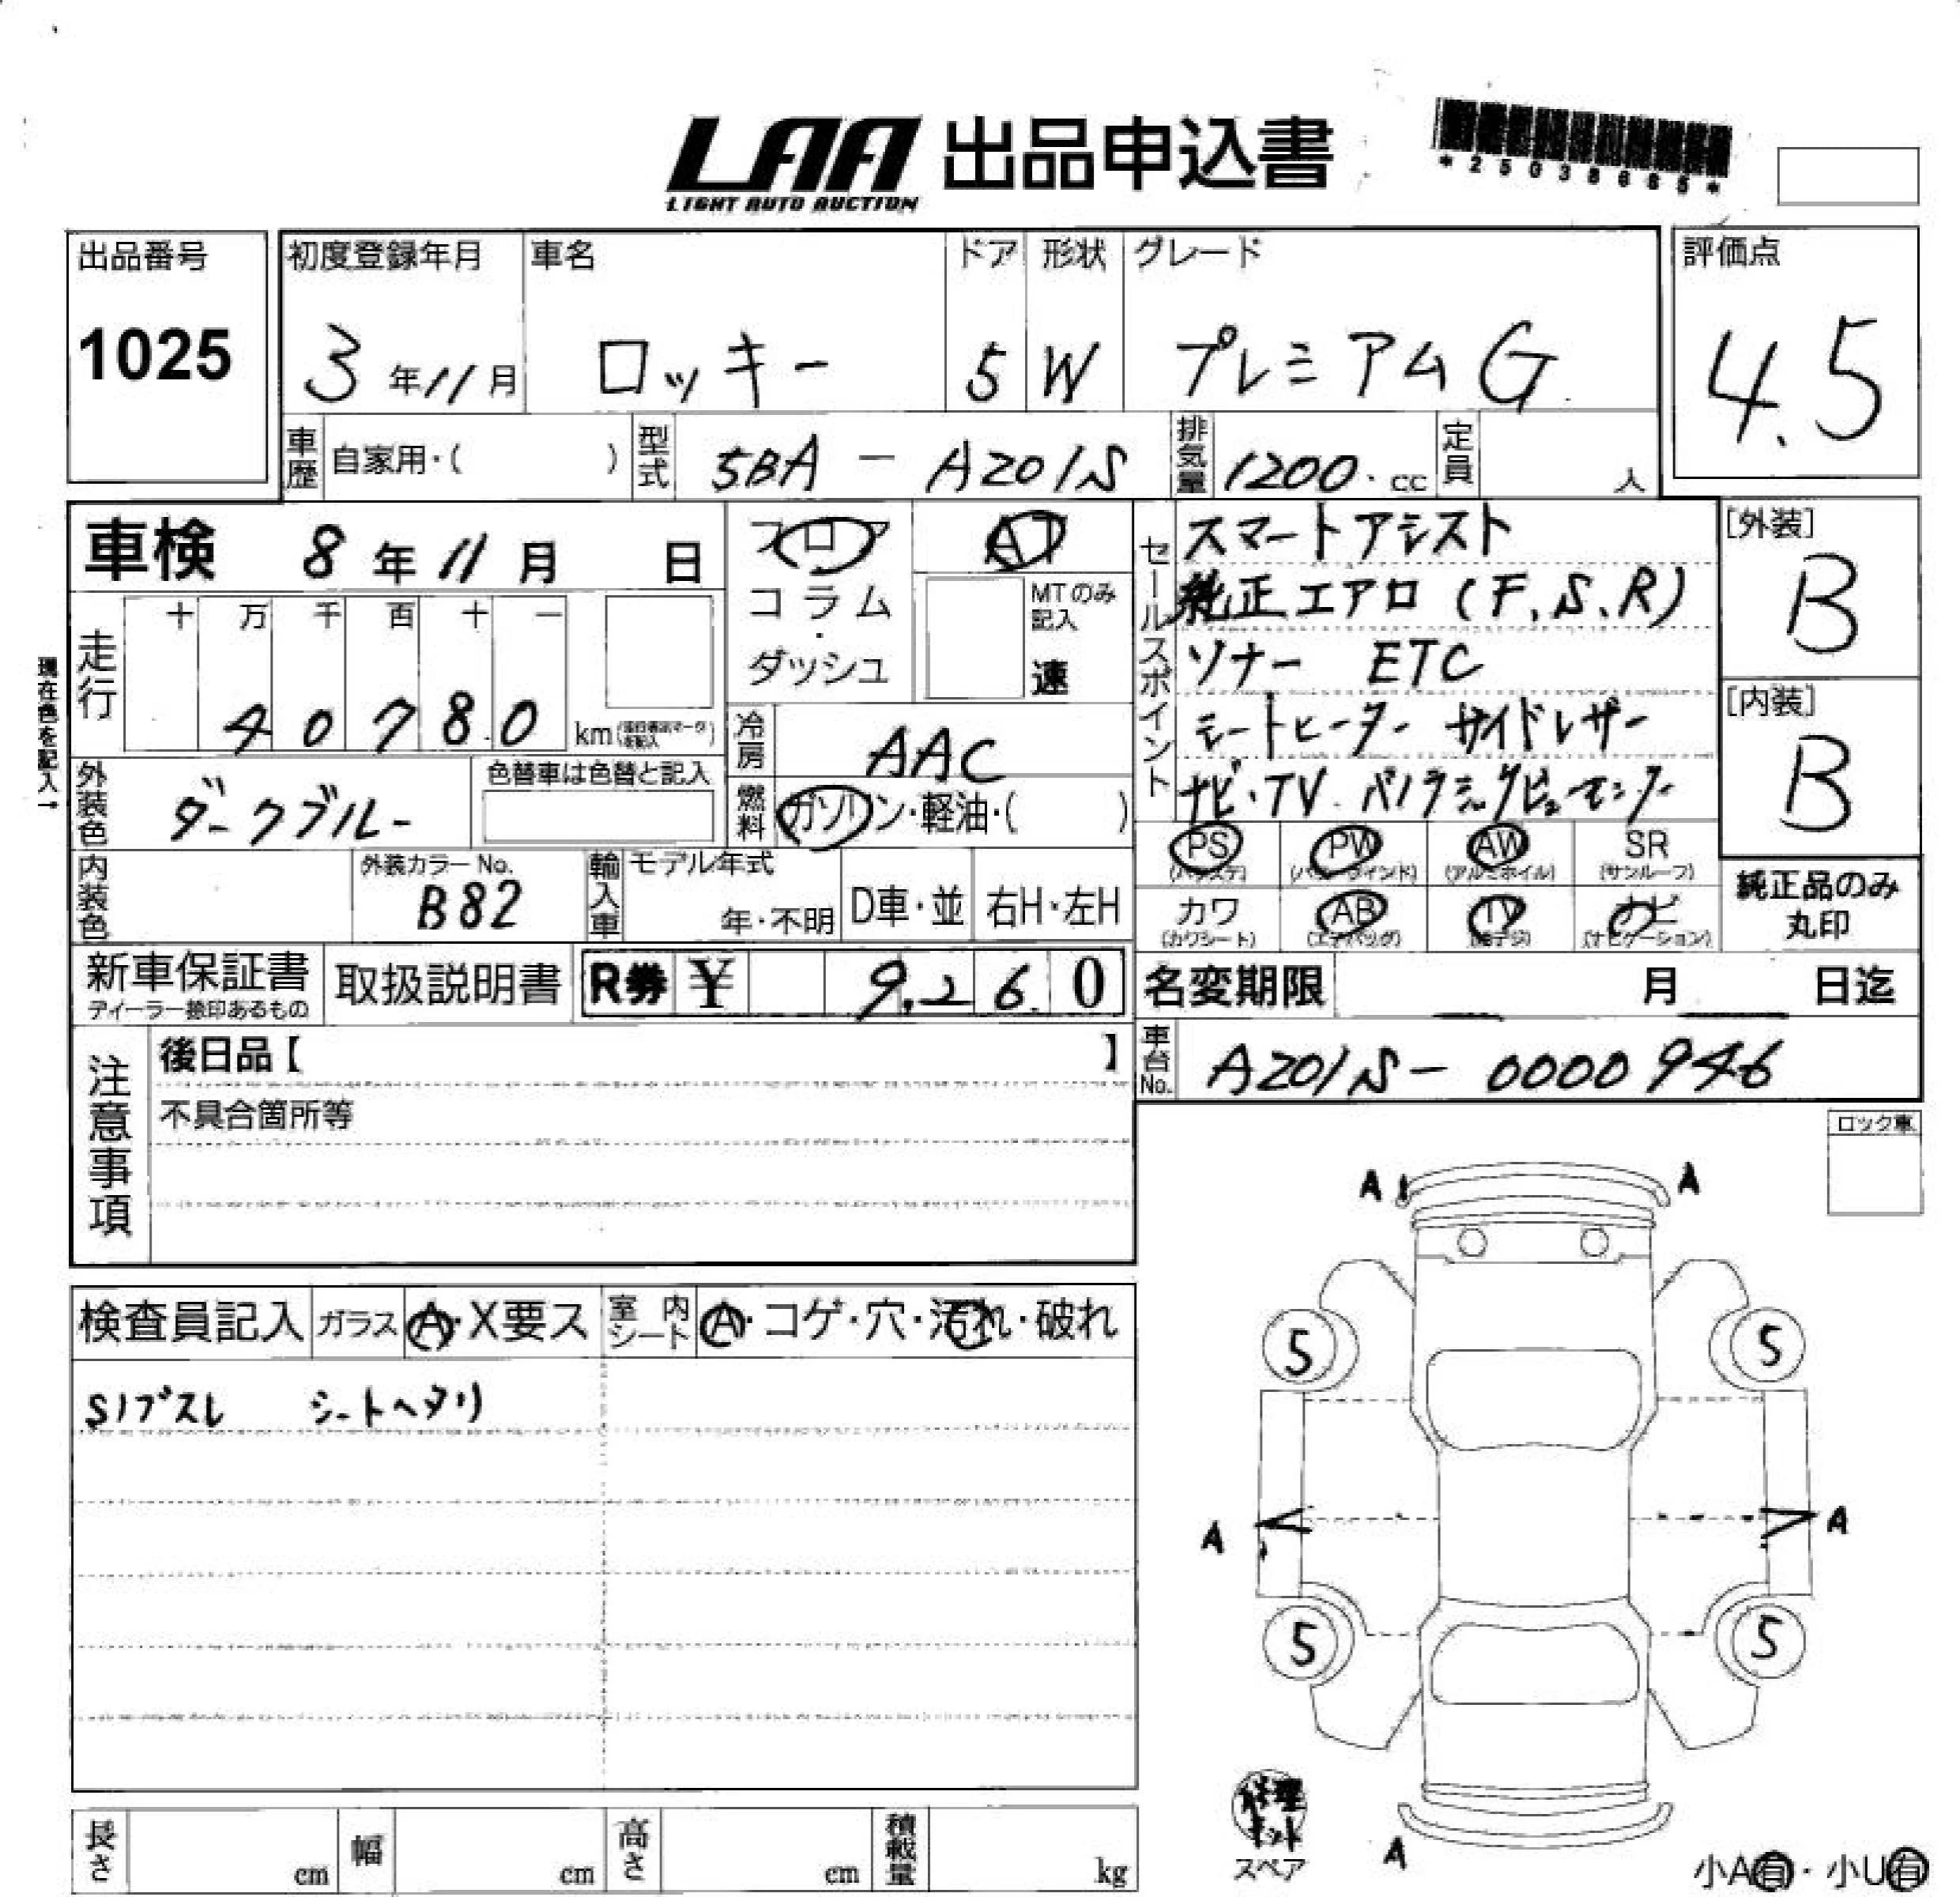 LAA 出品申込書
LIGHT AUTO AUCTION
*25038665*
出品番号 初度登録年月 車名 ドア 形状 グレード 評価点
1025 3年11月 ロッキー 5 W プレミアムG 4.5
車歴 自家用・( ) 型式 5BA - A201S 排気量 1200.cc 定員 人
車検 8年11月 日
フロア AT
コラム・ダッシュ MTのみ記入 速
セールスポイント
スマートアシスト
純正エアロ (F.S.R)
ソナー ETC
シートヒーター サイドレザー
ナビ・TV パノラミックビューモニター
[外装] B
[内装] B
現在色を記入→
走行 十 万 千 百 十 一
40780 km
冷房 AAC
外装色 ダークブルー 色替車は色替と記入
燃料 ガソリン・軽油・( )
PS (パワステ) PW (パワーウィンド) AW (アルミホイル) SR (サンルーフ)
カワ (カワシート) AB (エアバッグ) TV (地デジ) ナビ (ナビゲーション)
純正品のみ丸印
内装色 外装カラーNo. B82
輸入車 モデル年式 年・不明 D車・並 右H・左H
新車保証書 ディーラー捺印あるもの 取扱説明書 R券 ¥ 9,260
名変期限 月 日迄
車台No. A201S - 0000946
注意事項
後日品【 】
不具合箇所等
ロック車
検査員記入 ガラス A・X要ス 室内シート A・コゲ・穴・汚れ・破れ
Sノブスレ シートヘタリ
A A
5 5
A A
5 5
A
修理キット
スペア
小A有・小U有
長さ cm 幅 cm 高さ cm 積載量 kg